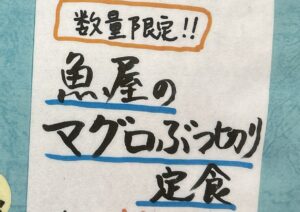 数量限定!!
魚屋の
マグロぶつ切り
定食